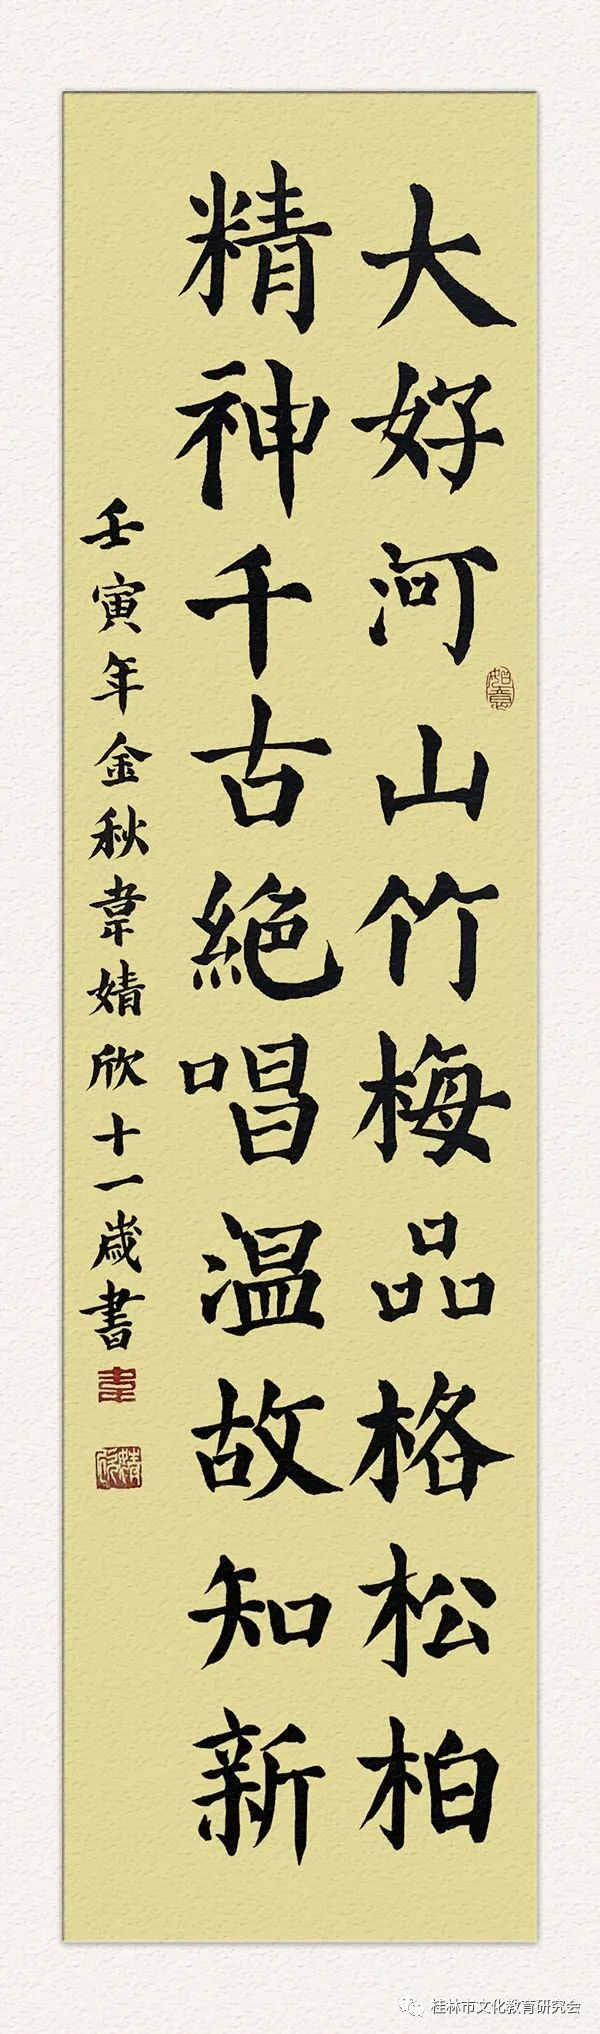 大好河山竹梅品格松柏
精神千古絕唱温故知新
壬寅年金秋韋婧欣十一歲書
如意
韋
婧欣
桂林市文化教育研究会